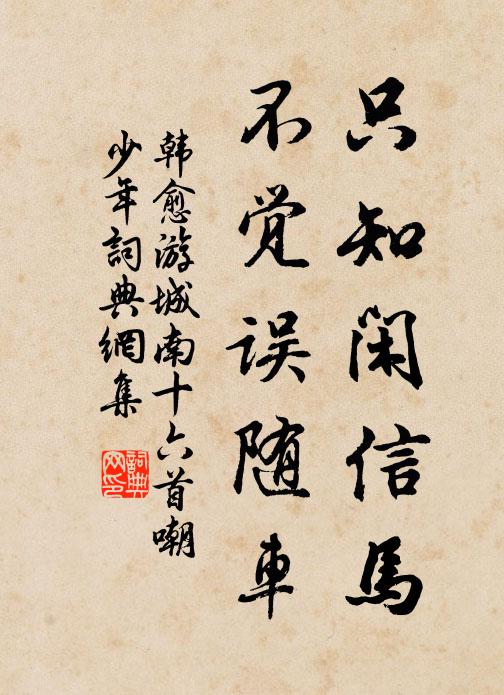 只知闲信馬
不觉误随車
韩愈游城南十六首嘲
少年詞典網集
詞典
网印